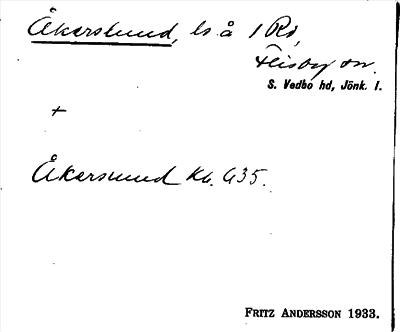 Åkerslund, ls å 1 Rå,
Flisby sn.
S. Vedbo hd, Jönk. l.
+
Åkerslund Kb. G35.
FRITZ ANDERSSON 1933.